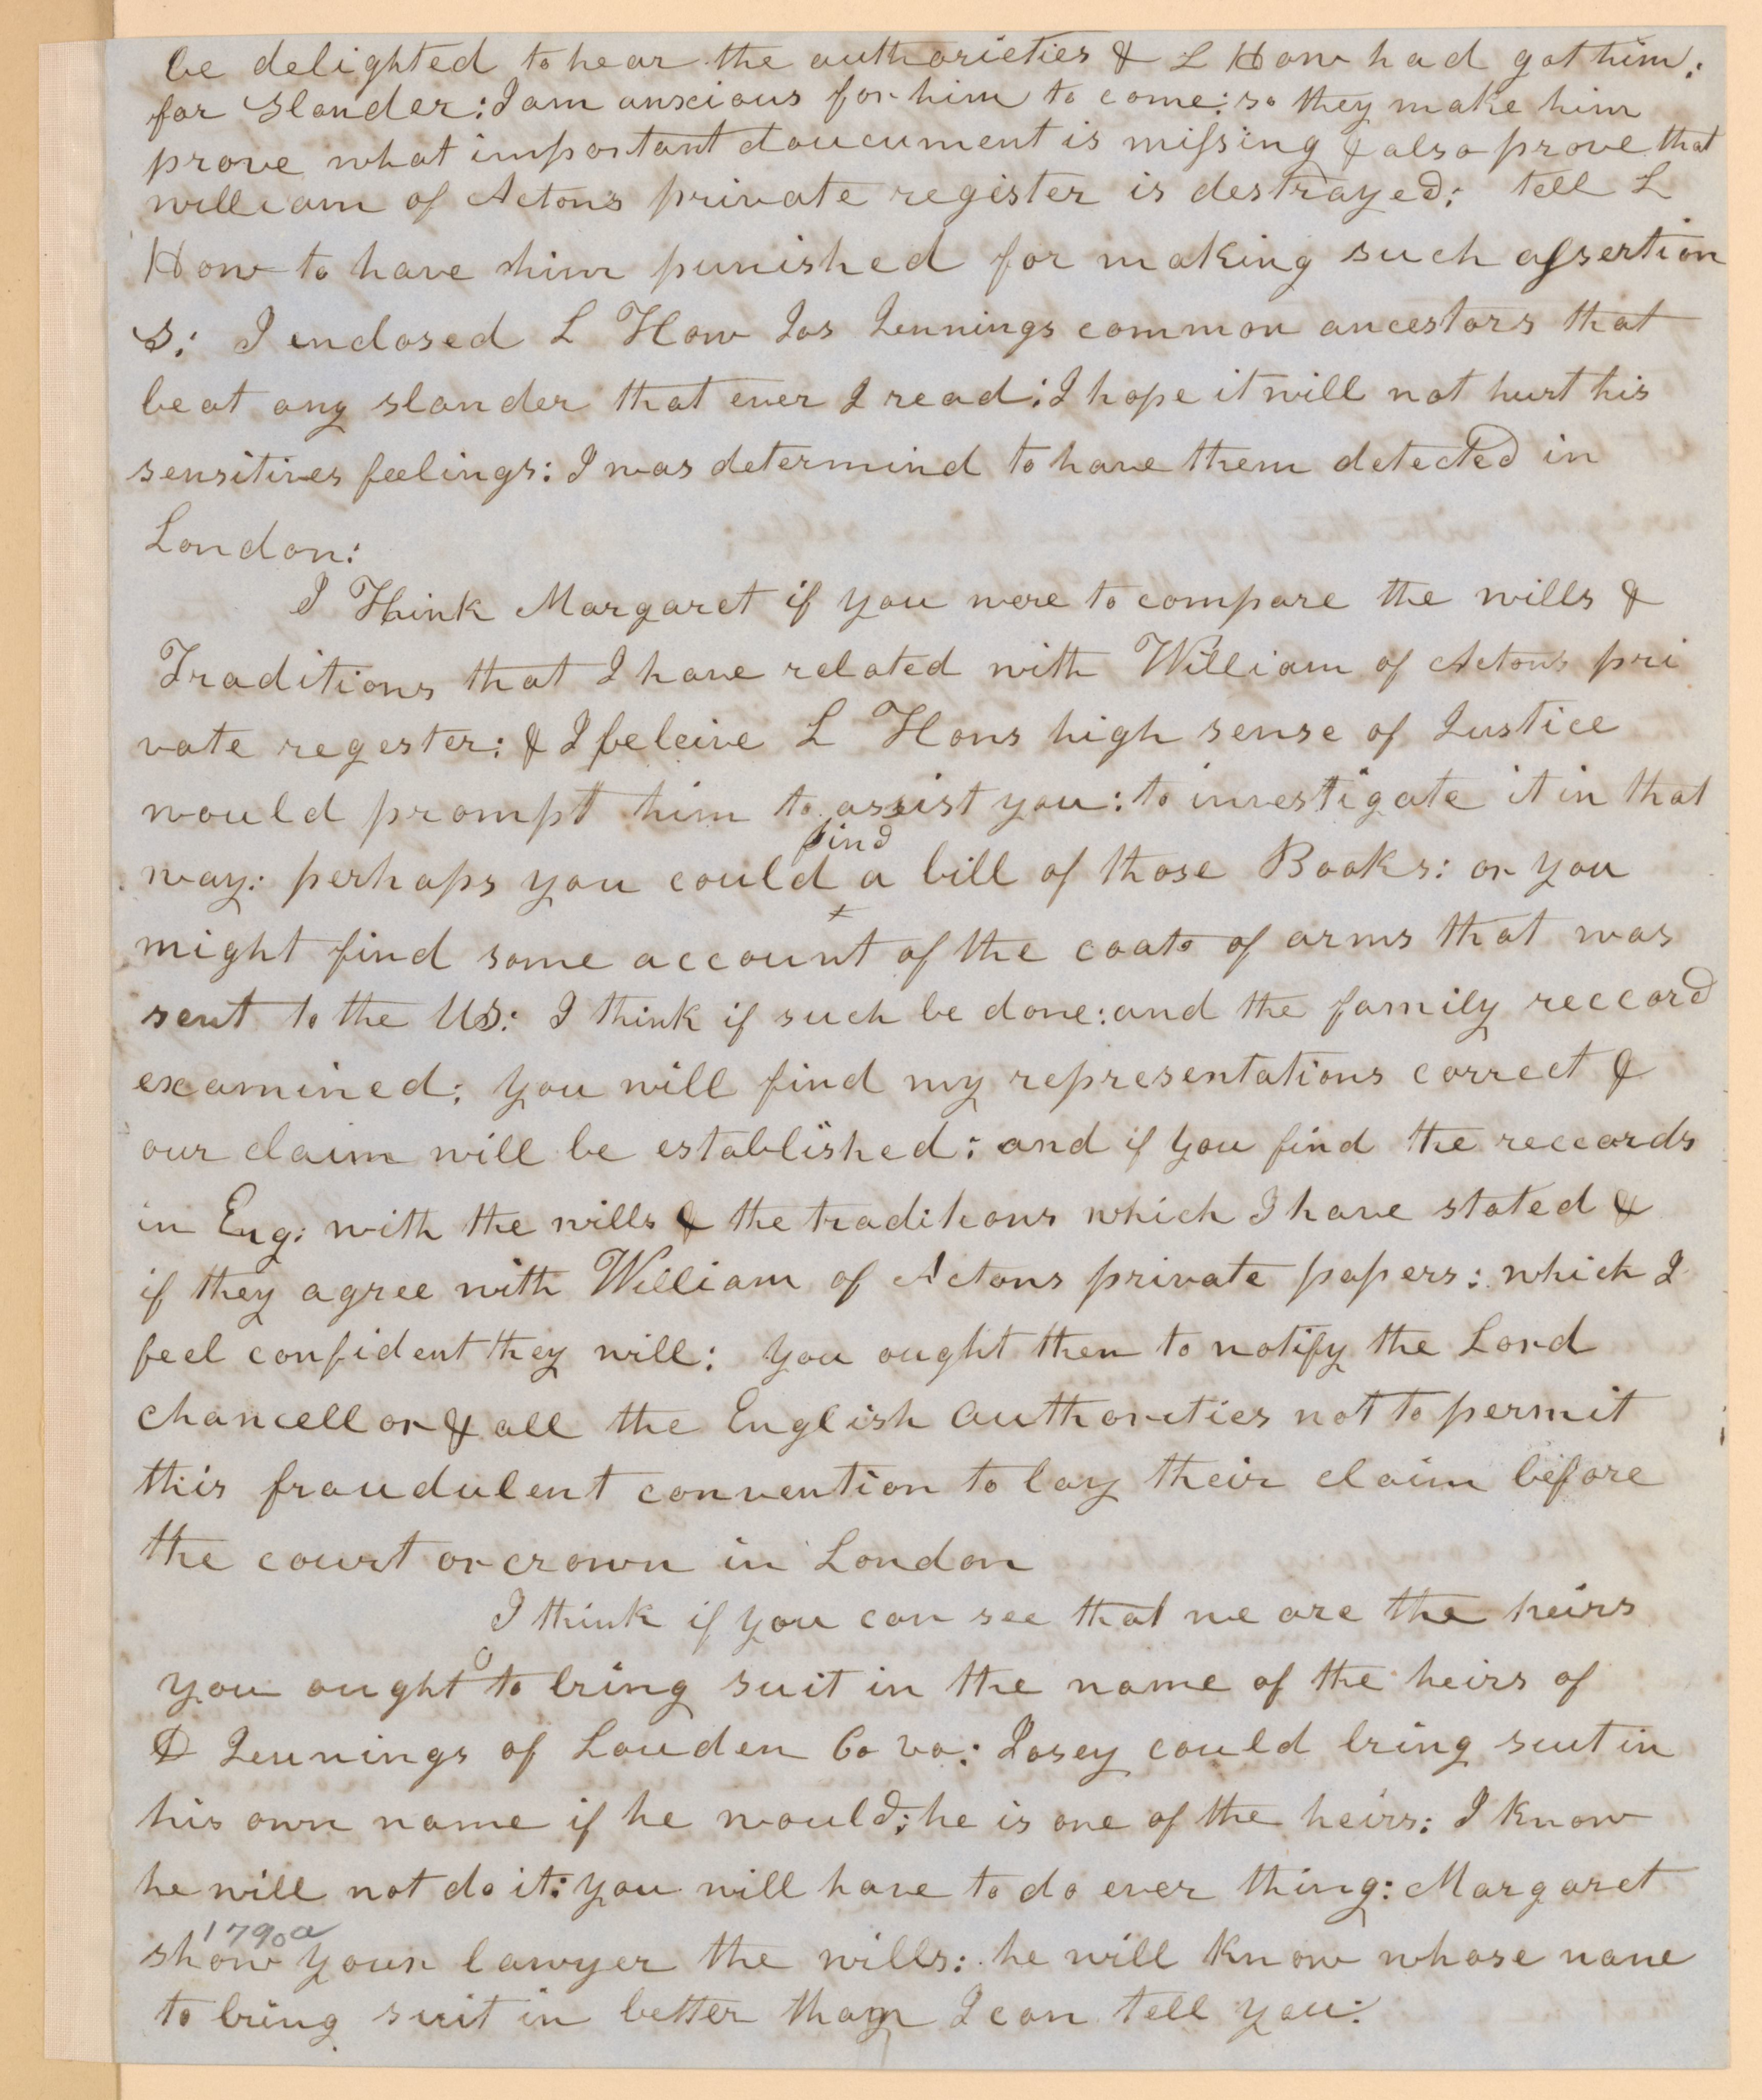 be delighted to hear the authorieties & L How had got him;
for slander: I am anxious for him to come: so they make him
prove what important doucument is missing & also prove that
william of Actons private register is destrayed: tell L
How to have him punished for making such assertion
s: I enclosed L How Jas Jennings common ancestors that
beat any slander that ever I read: I hope it will not hurt his
sensitives feelings: I was determind to have them detected in
London:
I Think Margaret if you were to compare the wills &
Traditions that I have related with William of Actons pri
vate regester: & I beleive L Hows high sense of Justice
would prompt him to assist you: to investigate it in that
find
way: perhaps you could a bill of those Books: or you
might find some account of the coats of arms that was
sent to the US: I think if such be done: and the family reccord
examined; you will find my representations correct &
our claim will be established: and if you find the reccords
in Eng: with the wills & the traditions which I have stated &
if they agree with William of Actons private papers: which I
feel confident they will: you ought then to notify the Lord
chancellor & all the English authorities not to permit
this fraudulent convention to lay their claim before
the court or crown in London
I think if you can see that we are the heirs
you ought to bring suit in the name of the heirs of
D Jennings of Louden Co va: Josey could bring suit in
his own name if he would; he is one of the heirs: I know
he will not do it: you will have to do ever thing: Margaret
1790a
show your lawyer the wills: he will know whose name
to bring suit in better than I can tell you: